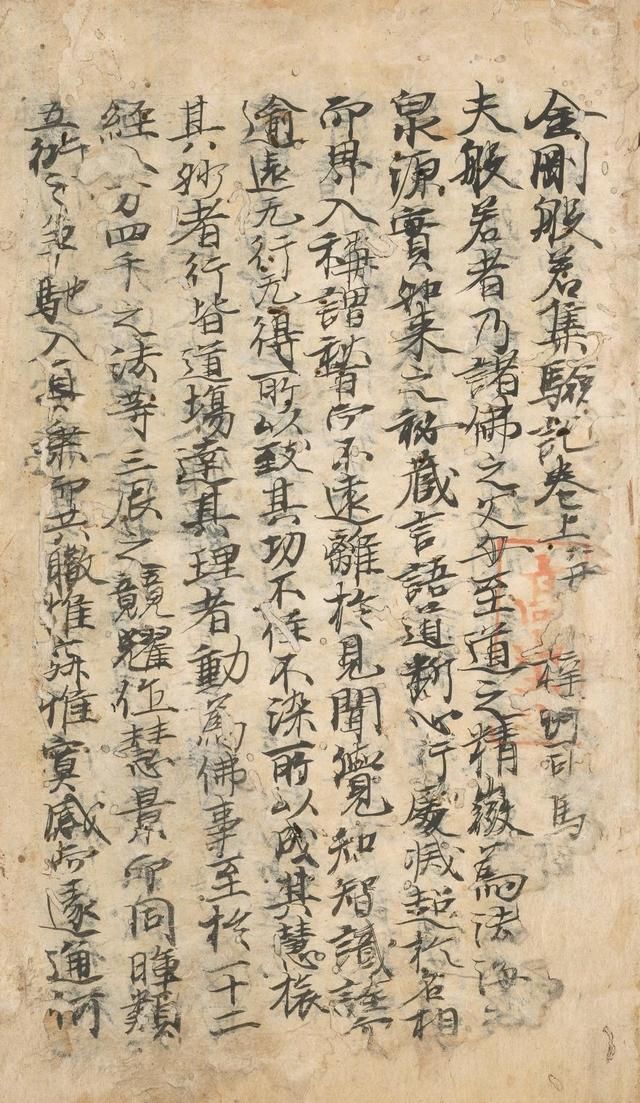 金剛般若集驗記卷上并 梓州司馬
夫般若者乃諸佛之父母至道之精微為法海
泉源實如来之祕藏言語道斷心行處滅超於名相
而界入稱謂暫而不遠離於見聞覺知智識詮而
逾遠无行无得所以致其功不住不染所以成其慧根
其妙者行皆道場達其理者動為佛事至於一十二
經八万四千之法等三辰之競耀伍慧景而同暉類
五之争馳入真而共轍惟惟寞感而遂通何